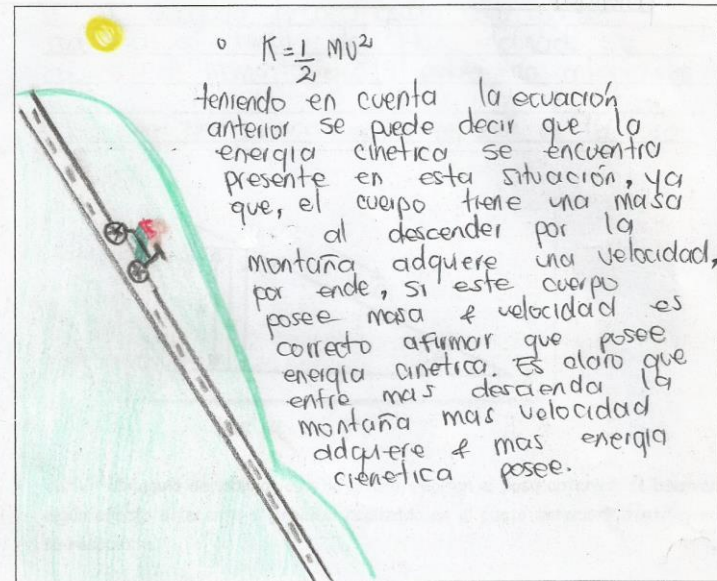 ° K = 1/2 MV²
teniendo en cuenta la ecuación
anterior se puede decir que la
energia cinetica se encuentra
presente en esta situación, ya
que, el cuerpo tiene una masa
al descender por la
montaña adquiere una velocidad,
por ende, si este cuerpo
posee masa & velocidad es
correcto afirmar que posee
energia cinetica. Es claro que
entre mas descienda la
montaña mas velocidad
adquiere & mas energia
cienetica posee.